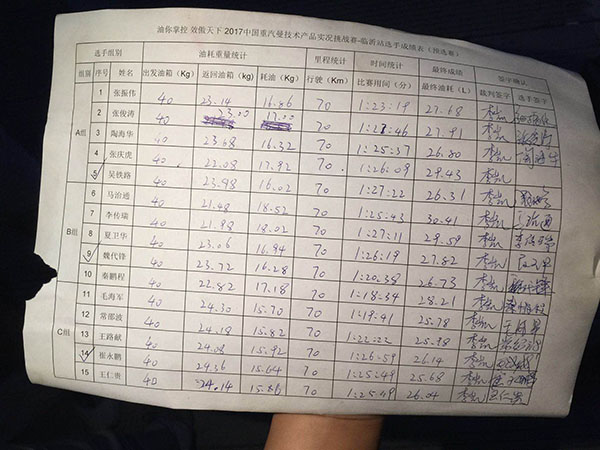 油你掌控 效傲天下 2017中国重汽曼技术产品实况挑战赛-临沂站选手成绩表（预选赛）
选手组别 油耗重量统计 里程统计 时间统计 最终成绩 签字确认
组别 序号 姓名 出发油箱（Kg） 返回油箱（kg） 耗油（Kg） 行驶（Km） 比赛用间（分） 最终油耗（L） 裁判签字 选手签字
A组
1 张振伟 40 23.14 16.86 70 1:23:19 27.68
2 张俊涛 40 23.00 17.00 70 27.91
3 陶海华 40 23.68 16.32 70 1:25:37 26.80
4 张庆虎 40 22.08 17.92 70 1:26:09 29.43
5 吴铁路 40 23.98 16.02 70 1:27:22 26.31
B组
6 马治通 40 21.48 18.52 70 1:25:43 30.41
7 李传瑞 40 21.98 18.02 70 1:27:11 29.59
8 夏卫华 40 23.06 16.94 70 1:26:19 27.82
9 魏代锋 40 23.72 16.28 70 1:20:38 26.73
10 秦鹏程 40 22.82 17.18 70 1:18:34 28.21
C组
11 毛海军 40 24.30 15.70 70 1:19:41 25.78
12 常邵波 40 24.18 15.82 70 1:22:22
13 王路献 40 24.08 15.92 70 1:26:59 26.14
14 崔永鹏 40 24.36 15.64 70 1:25:49 25.68
15 王仁贵 40 24.14 15.86 70 1:25:49 26.04